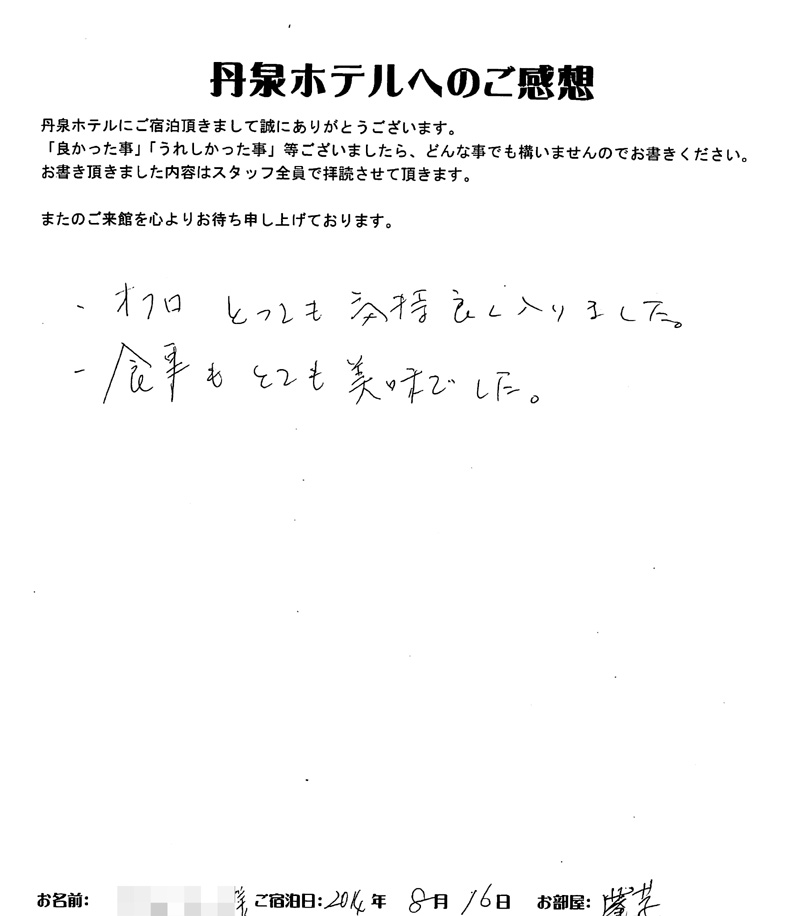 丹泉ホテルへのご感想
丹泉ホテルにご宿泊頂きまして誠にありがとうございます。
「良かった事」「うれしかった事」等ございましたら、どんな事でも構いませんのでお書きください。
お書き頂きました内容はスタッフ全員で拝読させて頂きます。
またのご来館を心よりお待ち申し上げております。
- オフロ とっても 気持良く入りました。
- 食事も とても 美味でした。
お名前: 様 ご宿泊日: 2014年 8月 16日 お部屋: